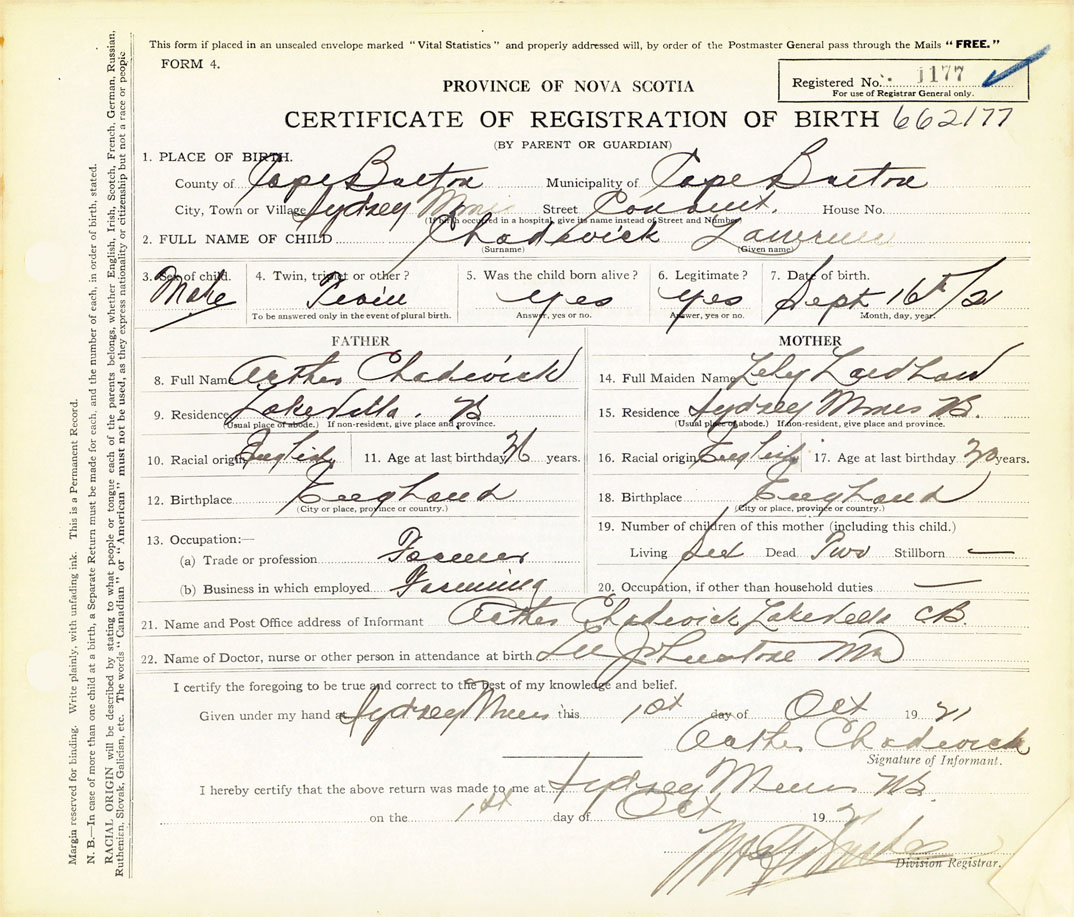 This form if placed in an unsealed envelope marked "Vital Statistics" and properly addressed will, by order of the Postmaster General pass through the Mails "FREE."
FORM 4.
Registered No. 1177
For use of Registrar General only.
PROVINCE OF NOVA SCOTIA
CERTIFICATE OF REGISTRATION OF BIRTH 662177
(BY PARENT OR GUARDIAN)
1. PLACE OF BIRTH.
County of Cape Breton Municipality of Cape Breton
City, Town or Village Sydney Mines Street Convent. House No.
(If birth occurred in a hospital, give its name instead of Street and Number)
2. FULL NAME OF CHILD Chadwick Lawrence
(Surname) (Given name)
3. Sex of child. 4. Twin, triplet or other? 5. Was the child born alive? 6. Legitimate? 7. Date of birth.
Male Twin yes yes Sept 16th/21
To be answered only in the event of plural birth. Answer, yes or no. Answer, yes or no. Month, day, year.
FATHER MOTHER
8. Full Name Arther Chadwick 14. Full Maiden Name Laidlaw
9. Residence 15. Residence Sydney Mines
(Usual place of abode.) If non-resident, give place and province. (Usual place of abode.) If non-resident, give place and province.
10. Racial origin English 11. Age at last birthday years. 16. Racial origin English 17. Age at last birthday years.
12. Birthplace England 18. Birthplace England
(City or place, province or country.) (City or place, province or country.)
13. Occupation:— 19. Number of children of this mother (including this child.)
(a) Trade or profession Farmer Living Dead Two Stillborn —
(b) Business in which employed Farming 20. Occupation, if other than household duties —
21. Name and Post Office address of Informant Arther Chadwick C.B.
22. Name of Doctor, nurse or other person in attendance at birth
I certify the foregoing to be true and correct to the best of my knowledge and belief.
Given under my hand at Sydney Mines this 1st day of Oct 1921
Arther Chadwick
Signature of Informant.
I hereby certify that the above return was made to me at Sydney Mines
on the 1st day of Oct 1921
Division Registrar.
Margin reserved for binding. Write plainly, with unfading ink. This is a Permanent Record.
N. B.—In case of more than one child at a birth, a Separate Return must be made for each, and the number of each, in order of birth, stated.
RACIAL ORIGIN will be described by stating to what people or tongue each of the parents belongs, whether English, Irish, Scotch, French, German, Russian,
Ruthenian, Slovak, Galician, etc. The words "Canadian" or "American" must not be used, as they express nationality or citizenship but not a race or people.